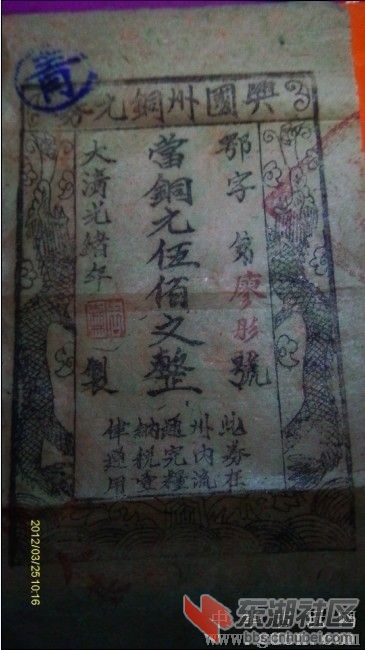 青
興國州銅元券
鄂字第廖彤號
當銅元伍佰文整
大清光緒年製
此券在
州内流
通完糧
納稅壹
律通用
2012/03/25 10:16
东湖社区
bbs.cnhubei.com